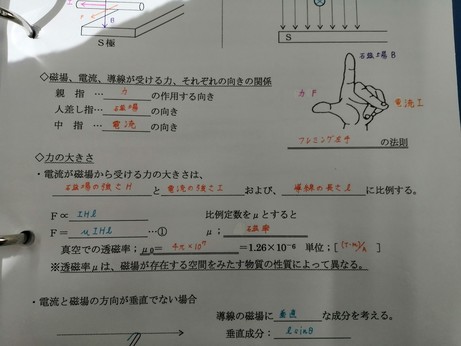 I
B
S 極
S
◇磁場、電流、導線が受ける力、それぞれの向きの関係
親 指 … 力 の作用する向き
人差し指… 磁場 の向き
中 指 … 電流 の向き
磁場 B
力 F
電流 I
フレミング左手 の法則
◇力の大きさ
・電流が磁場から受ける力の大きさは、
磁場の強さ H と 電流の強さ I および、 導線の長さ l に比例する。
F∝ IHl 比例定数をμとすると
F= μIHl …① μ; 透磁率
真空での透磁率;μ0= 4π×10⁷ =1.26×10⁻⁶ 単位;[ T·m/A ]
※透磁率μは、磁場が存在する空間をみたす物質の性質によって異なる。
・電流と磁場の方向が垂直でない場合
導線の磁場に 垂直 な成分を考える。
垂直成分: l sinθ